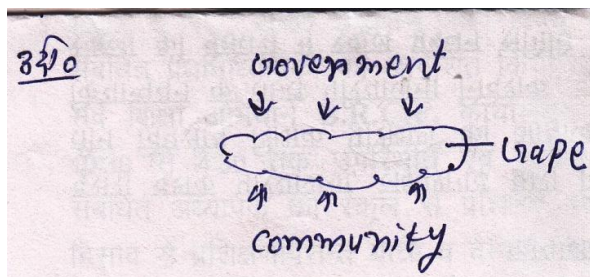 Government
Gape
community